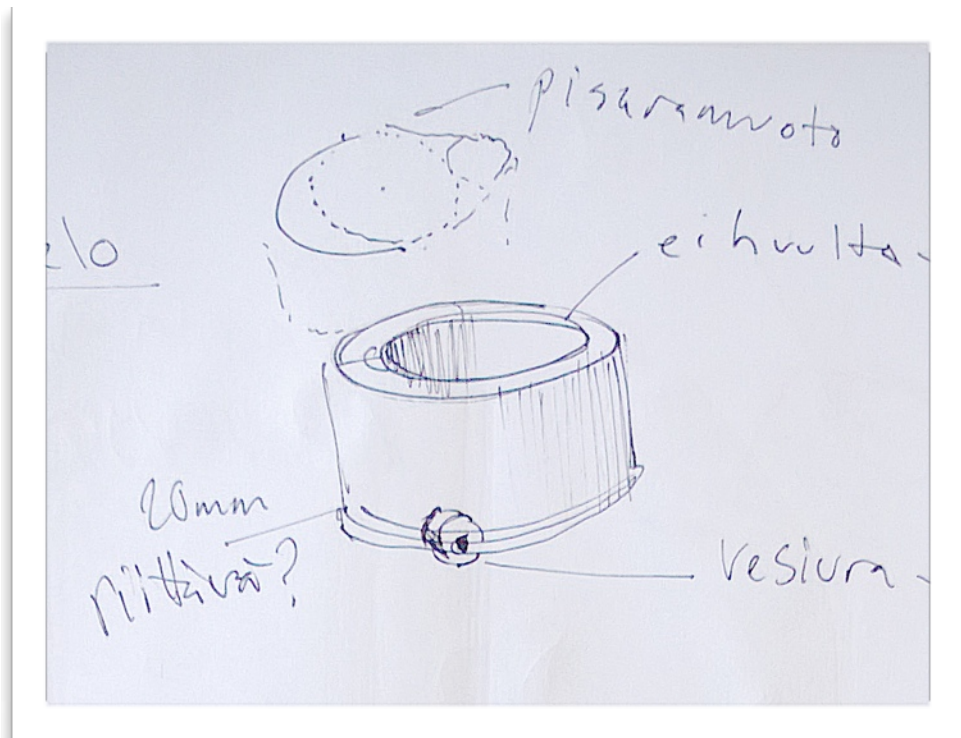 pisaramuoto
elo
ei huulta-
20mm
riittävä?
vesiura-